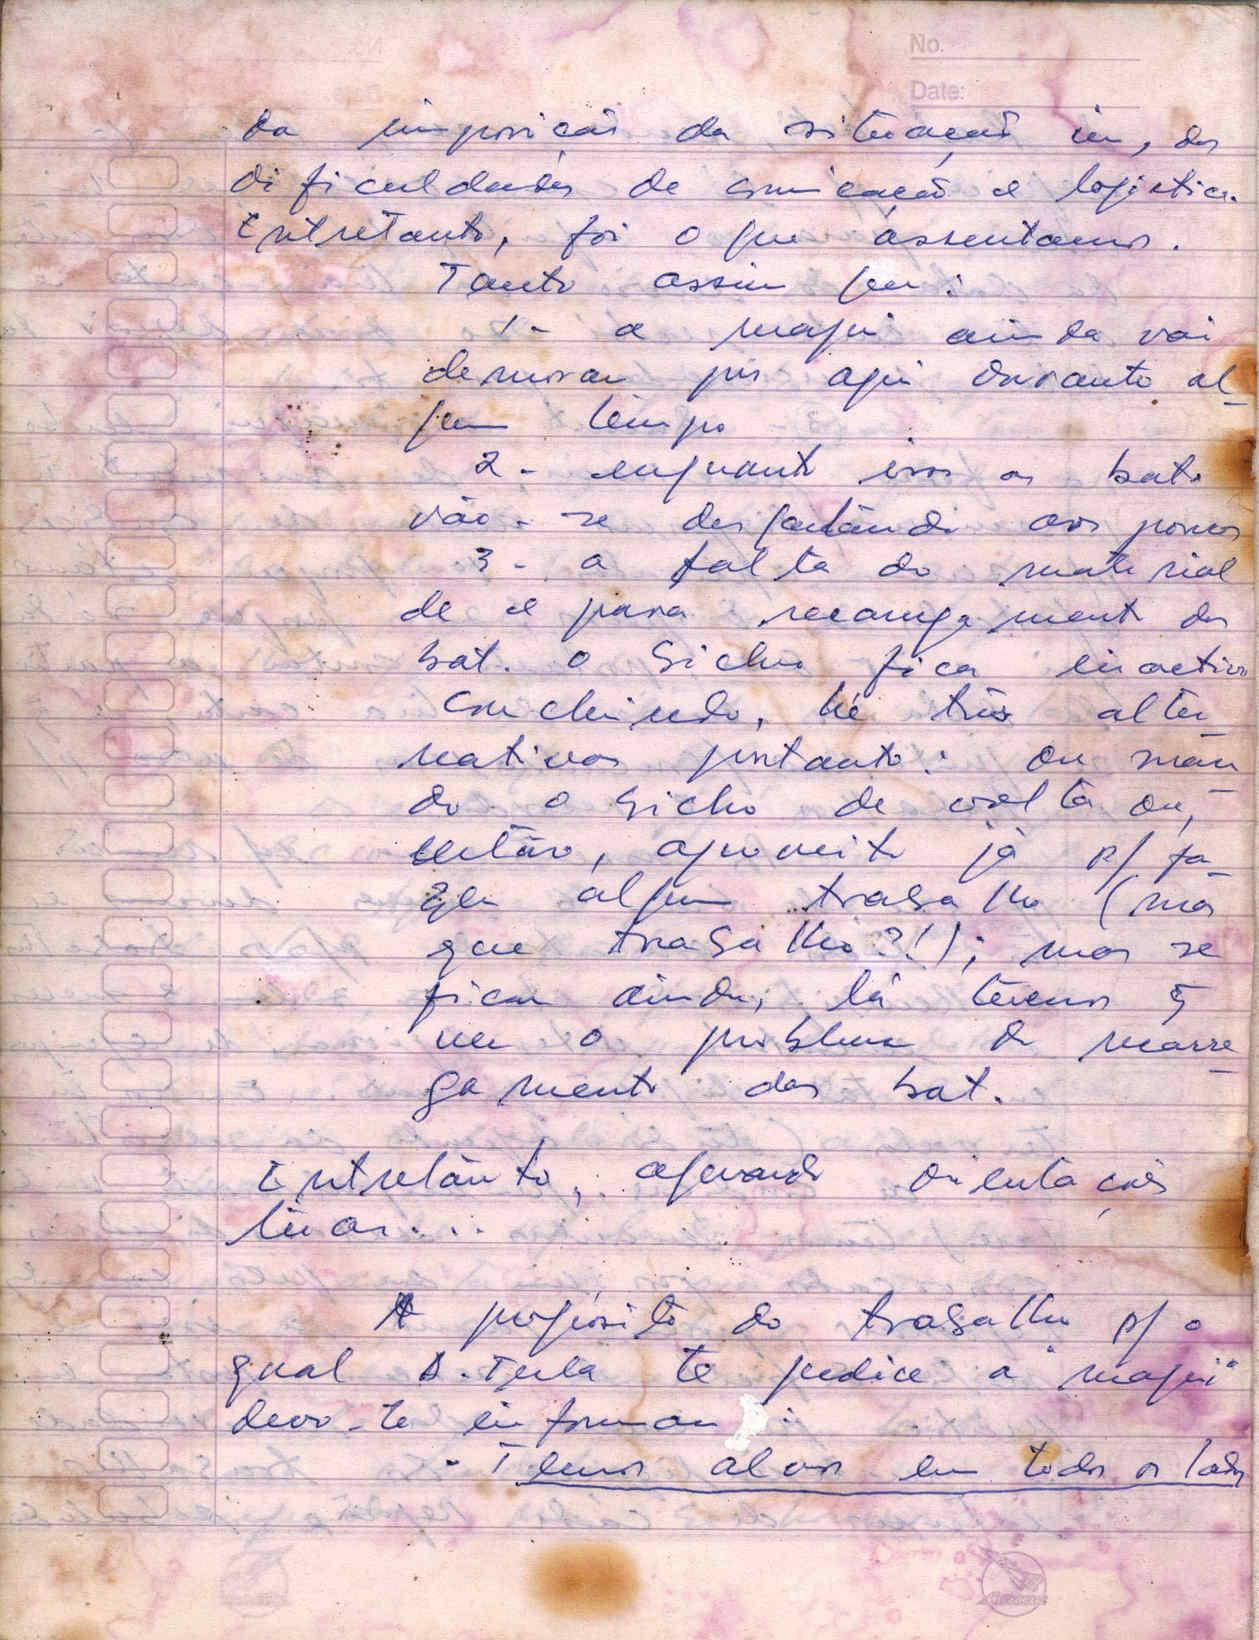 No.
Date:
da imposição da situação in, das
dificuldades de comicação e logistica.
Entretanto, foi o que assentamos.
Tanto assim que:
1- a maqui ainda vai
demorar por aqui durante al-
gum tempo
2- enquanto isso as bat.
vão-se desgastando aos poucos
3- a falta do material
de e para recarregamento das
bat. o bicho fica inactivo
Concluindo, há três alter-
nativas portanto: ou man-
do o bicho de volta ou,
então, aproveito já p/ fa-
zer algum trabalho (mas
que trabalho?!); mas se
ficar ainda, lá teremos q
ver o problema do recarre-
gamento das bat.
Entretanto, aguardo orientações
tuas....
A propósito do trabalho p/ o
qual A. te pedia a "maqui"
devo-te informar:
- Temos alvos em todos os lados